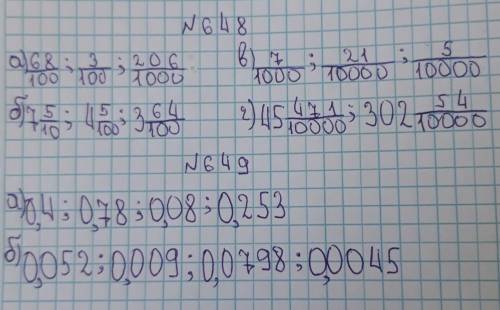 №648
а) 68/100; 3/100; 206/1000 в) 7/1000; 21/10000; 5/10000
б) 7 5/10; 4 5/100; 3 64/100 г) 45 471/10000; 302 54/10000
№649
а) 0,4; 0,78; 0,08; 0,253
б) 0,052; 0,009; 0,0798; 0,0045